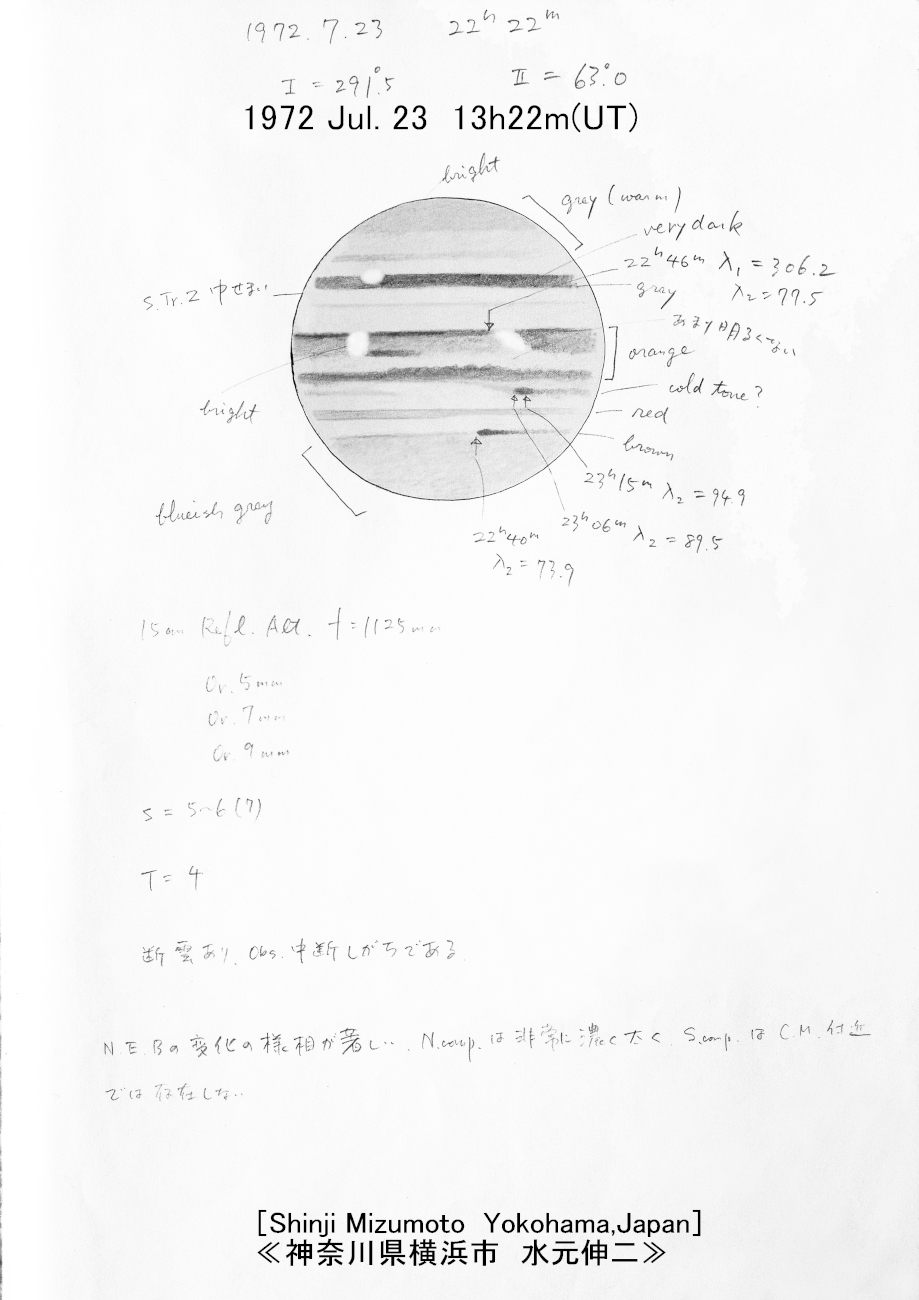 1972. 7. 23 22h 22m
I = 291°.5 II = 63°.0
1972 Jul. 23 13h22m(UT)
bright
gray (warm)
very dark
22h46m λ1 = 306.2
λ2 = 77.5
gray
S.Tr.Z 巾せまい
あまり明るくない
orange
cold tone?
red
bright
brown
23h15m λ2 = 94.9
blueish gray
23h06m λ2 = 89.5
22h40m
λ2 = 73.9
15cm Refl. Alt. f=1125mm
Or. 5mm
Or. 7mm
Or. 9mm
S = 5~6(7)
T = 4
断雲あり. Obs. 中断しがちである.
N.E.Bの変化の様相が著しい. N.comp. は非常に濃く太く. S.comp. は C.M.付近
では存在しない.
[Shinji Mizumoto Yokohama,Japan]
≪神奈川県横浜市 水元伸二≫